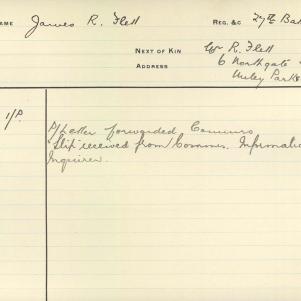 NAME James R. Flett REG. &C 27th Bat
NEXT OF KIN Mr R. Flett
ADDRESS 6 Northgate
Unley Park
1/P. P/Letter forwarded Commrs
Slip received from Commrs. Informatio
Inquirer.